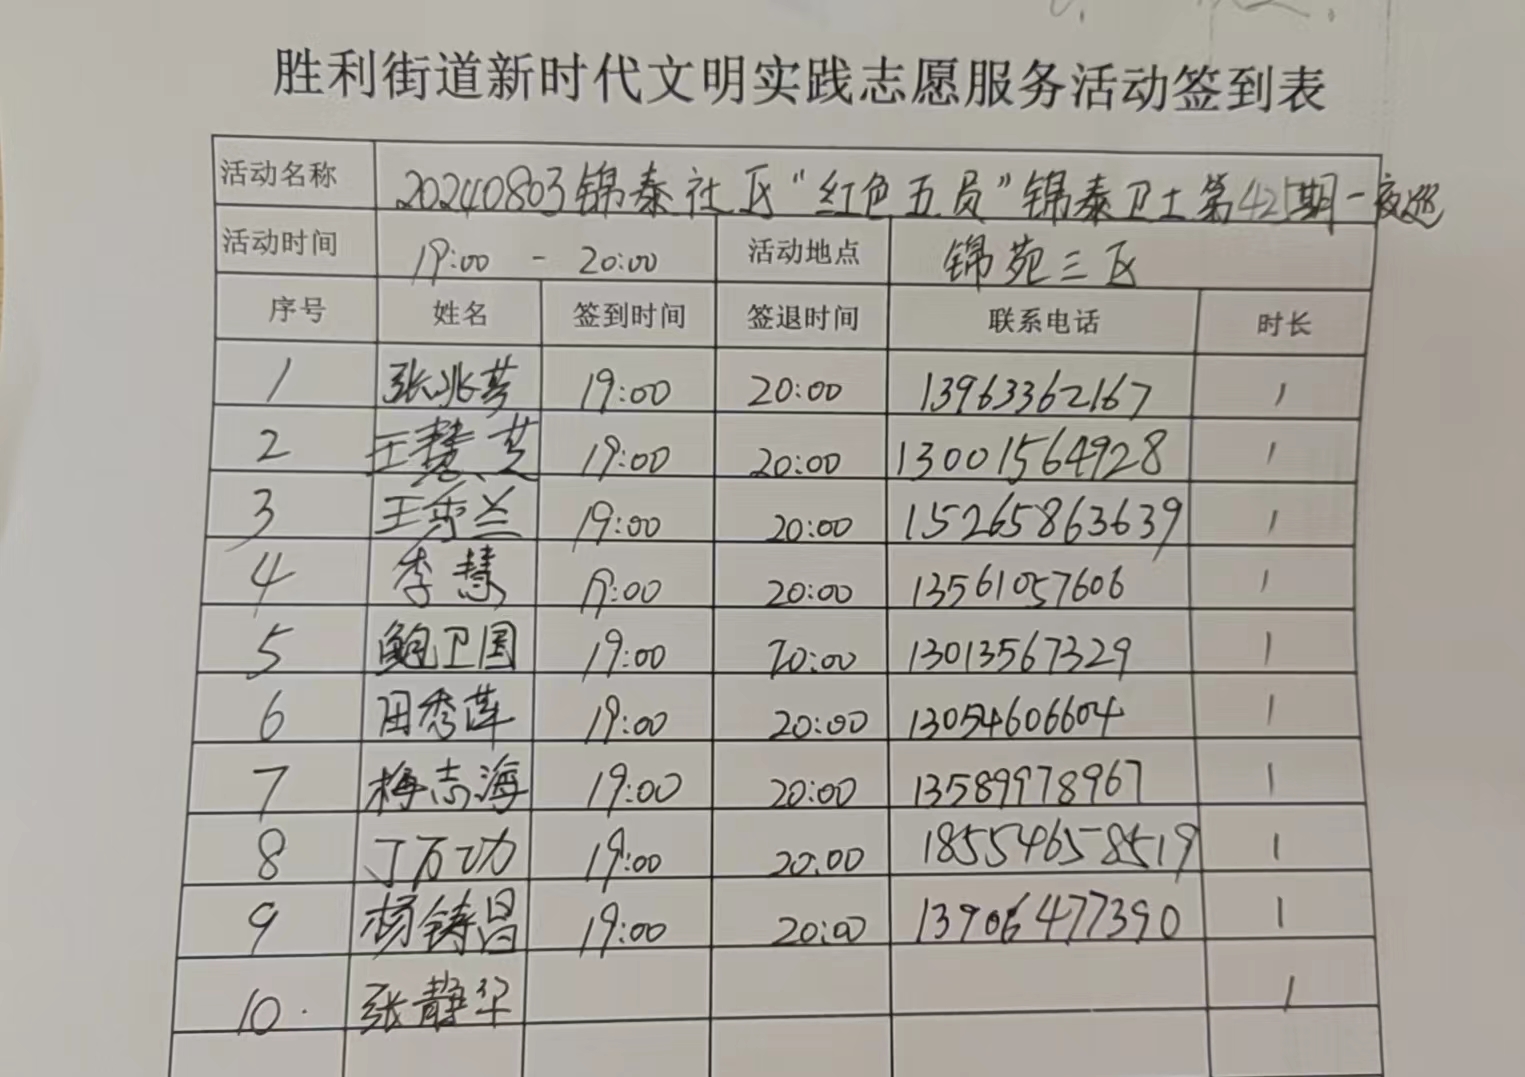 胜利街道新时代文明实践志愿服务活动签到表
活动名称 20240803锦泰社区"红色五员"锦泰卫士第425期一夜巡
活动时间 19:00 - 20:00 活动地点 锦苑三区
序号 姓名 签到时间 签退时间 联系电话 时长
1 张兆芳 19:00 20:00 13963362167 1
2 王慧芝 19:00 20:00 13001564928 1
3 王秀兰 19:00 20:00 15265863639 1
4 李慧 19:00 20:00 13561057606 1
5 鲍卫国 19:00 20:00 13013567329 1
6 田秀莲 19:00 20:00 13054606604 1
7 梅志海 19:00 20:00 13589978967 1
8 丁万功 19:00 20:00 18554658519 1
9 杨铸昌 19:00 20:00 13906477390 1
10. 张静华 1